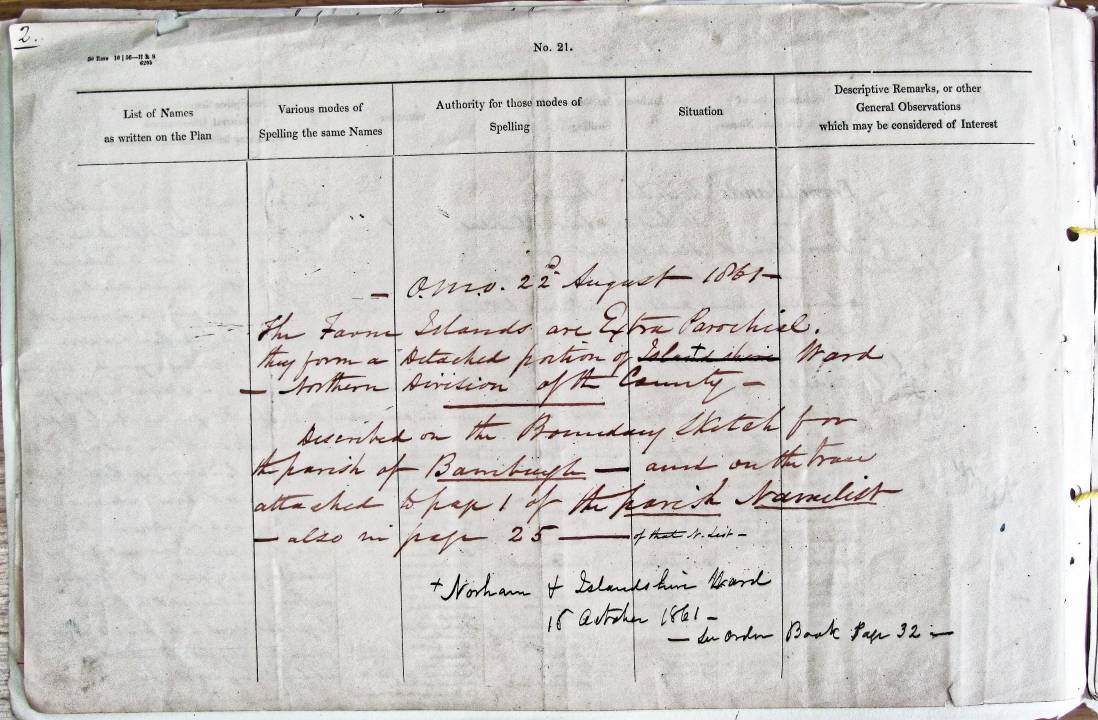 2.
No. 21.
List of Names
as written on the Plan
Various modes of
Spelling the same Names
Authority for those modes of
Spelling
Situation
Descriptive Remarks, or other
General Observations
which may be considered of Interest
— O.M.O. 22d August 1861 —
The Farne Islands are Extra Parochial.
they form a Detached portion of Islandshire + Ward
— Northern Division of the County —
Described on the Boundary Sketch for
the parish of Bamburgh — and on the trace
attached to page 1 of the parish Namelist
— also in page 25 — of that N. List —
+ Norham & Islandshire Ward
18 October 1861 —
— See Order Book Page 32 —